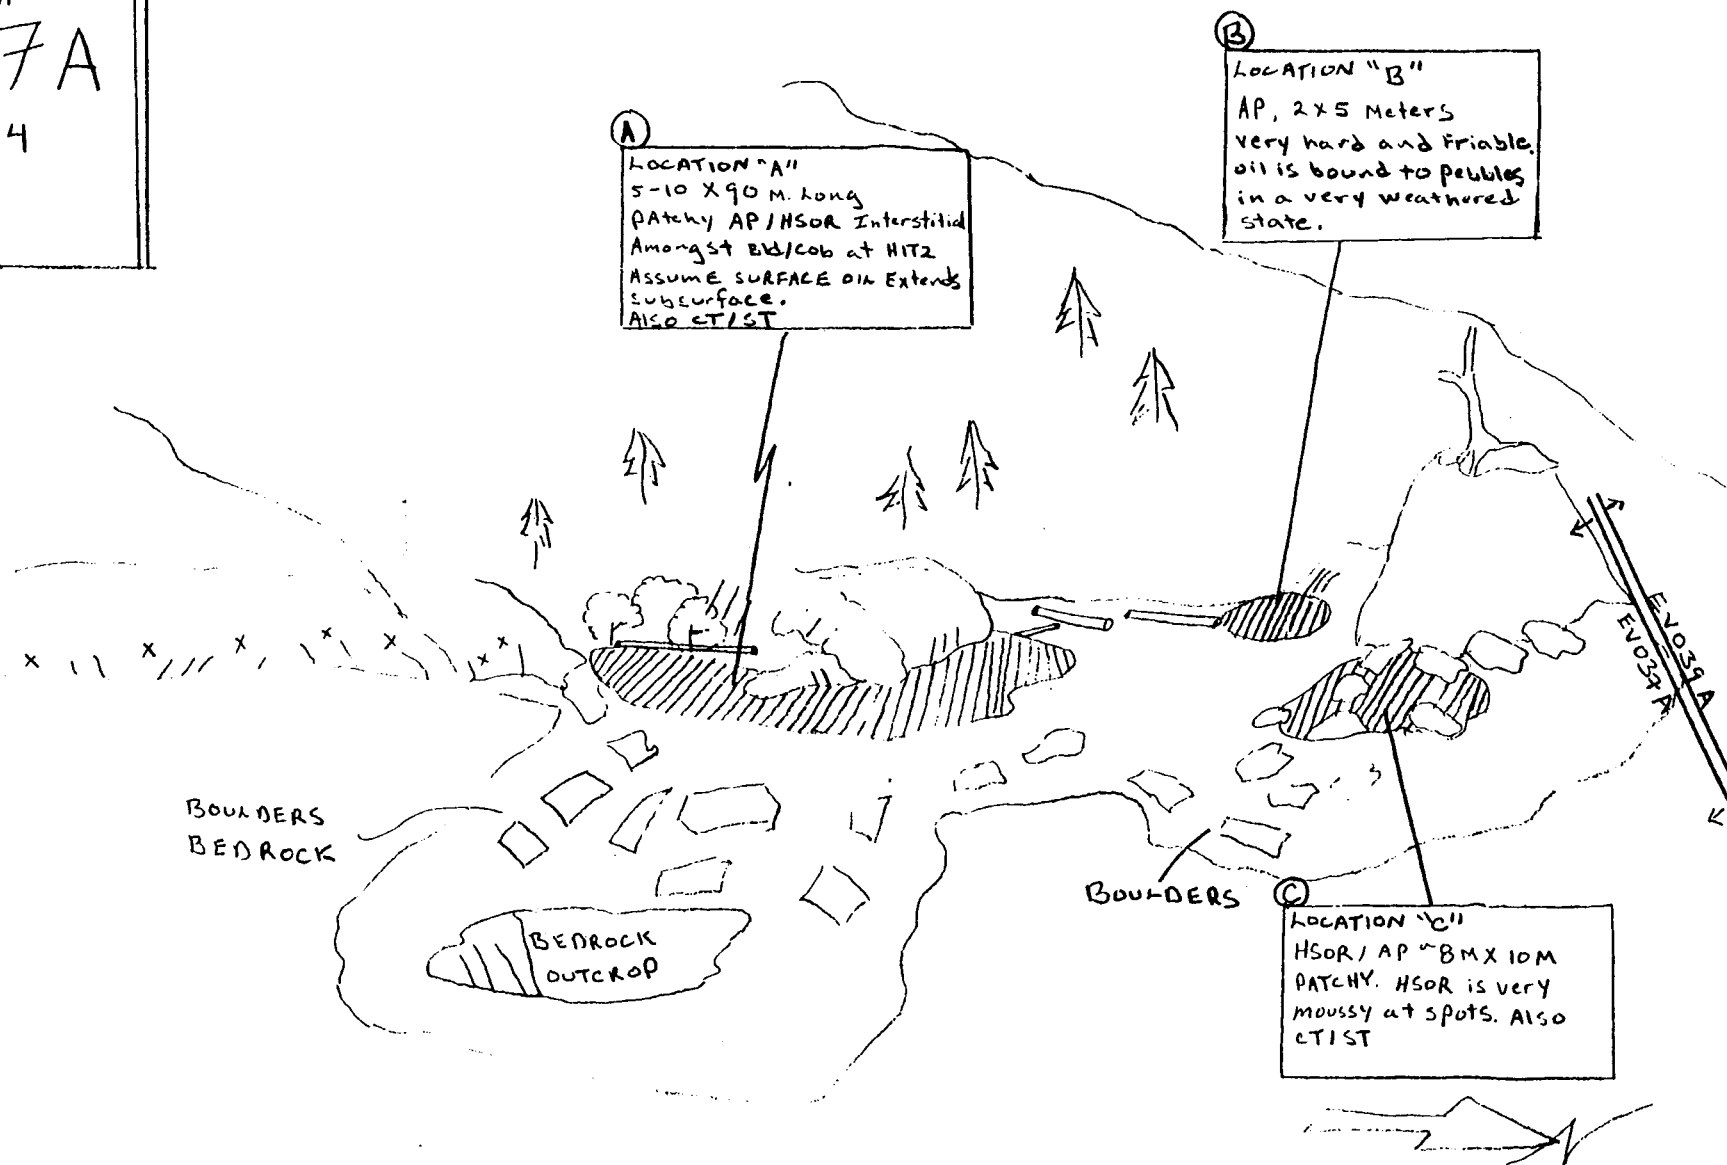 7A
4
A
LOCATION "A"
5-10 X 90 M. Long
PAtchy AP/HSOR Interstitial
Amongst Bld/Cob at HITZ
Assume SURFACE OIL Extends
subsurface.
Also CT/ST
B
LOCATION "B"
AP, 2x5 Meters
very hard and Friable.
oil is bound to pebbles
in a very weathered
state.
EV039A
EV037A
BOULDERS
BEDROCK
BEDROCK
OUTCROP
BOULDERS
C
LOCATION "C"
HSOR/AP ~8M X 10M
PATCHY. HSOR is very
moussy at spots. Also
CT/ST
N